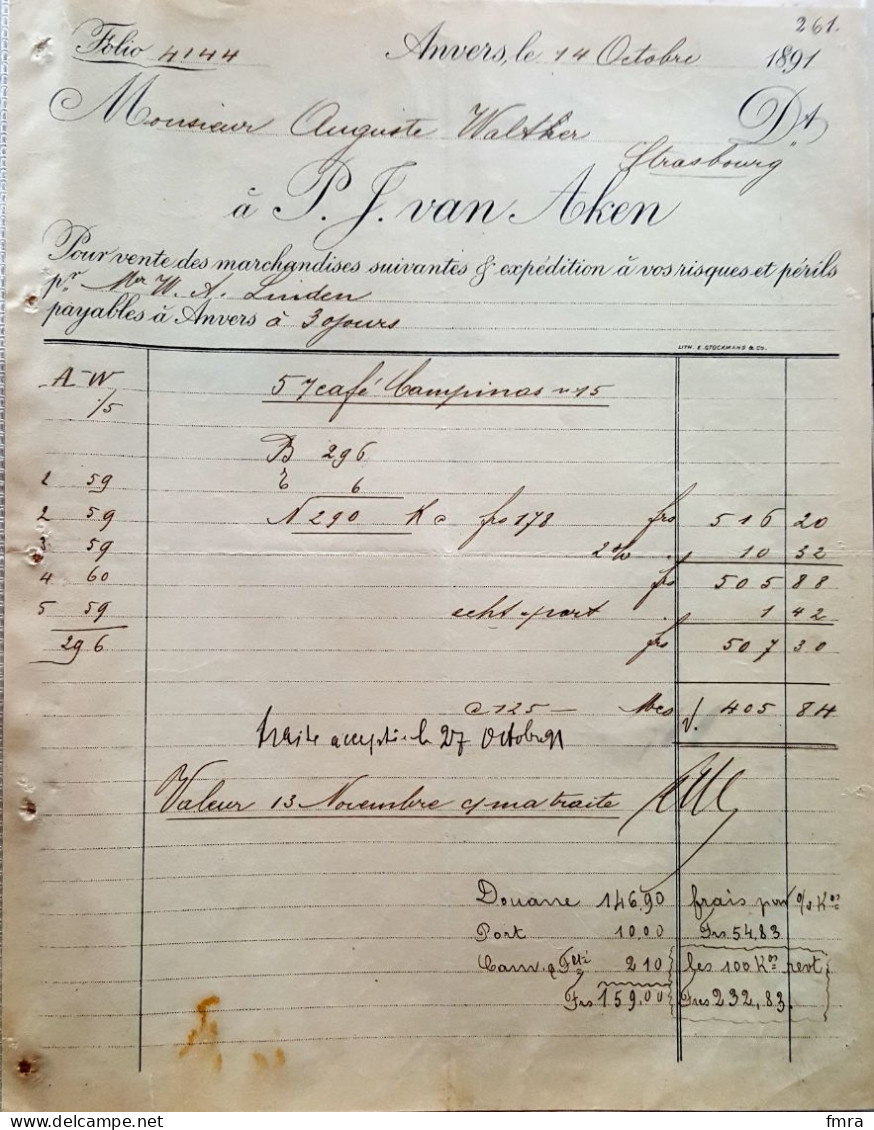 261.
Folio 4144 Anvers, le 14 Octobre 1891
Monsieur Auguste Walther Dt
Strasbourg
à P. J. van Aken
Pour vente des marchandises suivantes & expédition à vos risques et périls
pr Mr W. A. Linden
payables à Anvers à 30 jours
LITH. E. STOCKMANS & Co.
A W 5 café Campinas n 15
1/5
B 296
1 59 T 6
2 59 N 290 K a frs 178 frs 516 20
3 59 2% 10 32
4 60 frs 505 88
5 59 port 1 42
296 frs 507 30
a 125 — Mcs 405 84
traite acceptée le 27 Octobre 91
Valeur 13 Novembre c/ ma traite
Douane 146,90 frais par % Kos
Port 10.00 Frs 54.83
Cam. & 2 10 les 100 Kos revt
Frs 159.00 Frs 232,83.
delcampe.net
fmra